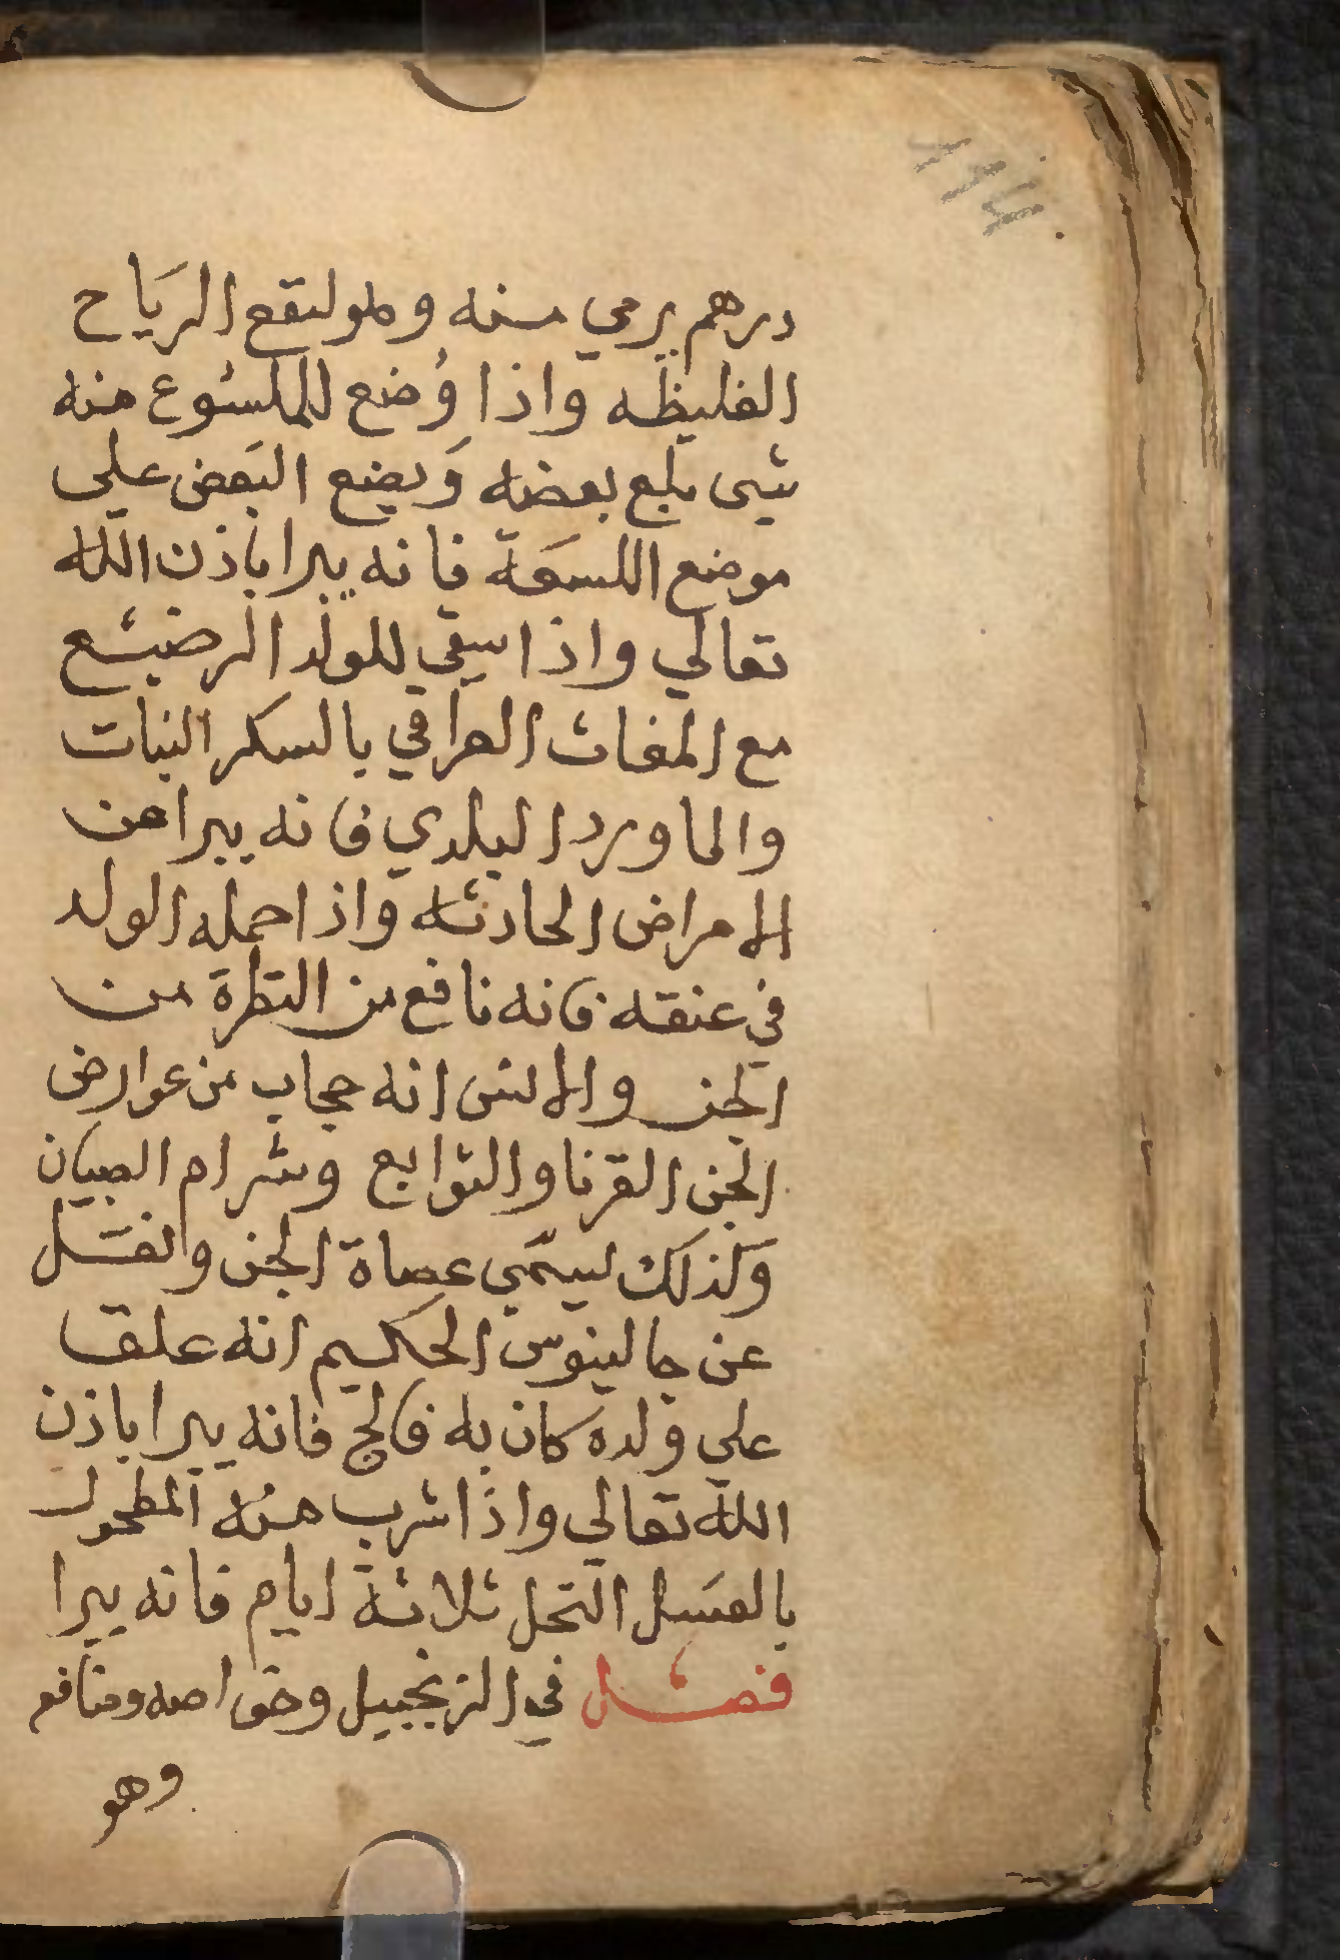 درهم يرمي منه وهو ينفع الرياح
الغليظه واذا وُضع للملسُوع منه
شيى يلع بعضه وَيضع البَعض على
موضع اللسعَة فانه يبرا باذن الله
تعالي واذا سقي للولد الرضيع
مع المغاث العراقي بالسكر النبات
والماورد البلدي فانه يبرا من
الامراض الحادثه واذا حمله الولد
في عنقه فانه نافع من النظرة من
الجن والانس انه حجاب من عوارض
الجن القرنا والتوابع وشر ام الصبيان
وَلذلك يسمَّي عصاة الجن ونقل
عن جالينوس الحكيم انه علق
علي ولده كان به فالج فانه يبرا باذن
الله تعالي واذا شرب منه المطحول
بالعسَل النحل ثلاثة ايام فانه يبرا
فصل في الزنجبيل وخواصه ومنافع
وهو